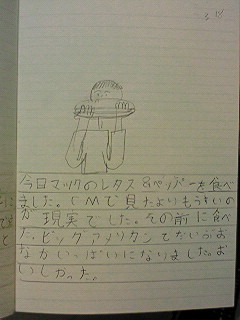 今日マックのレタス&ペッパーを食べ
ました。CMで見たよりもうすいの
が現実でした。その前に食べ
た、ビッグアメリカンでだいぶお
なかいっぱいになりました。お
いしかった。